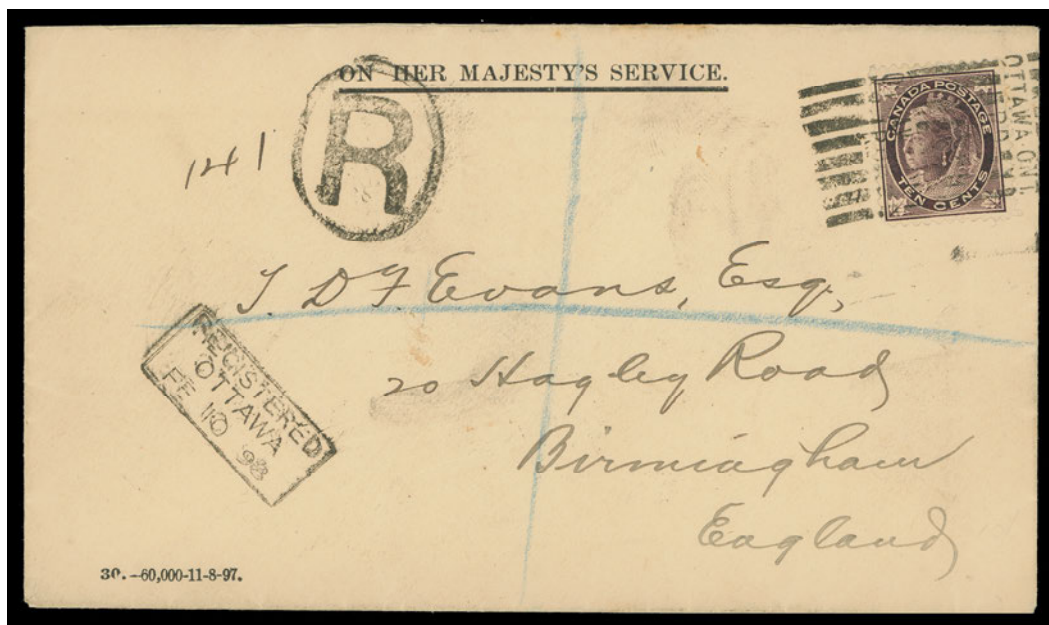 ON HER MAJESTY'S SERVICE.
R
141
CANADA POSTAGE
TEN CENTS
OTTAWA ONT
J D F Evans, Esq,
20 Hagley Road
Birmingham
England
REGISTERED
OTTAWA
FE 10 98
30.–60,000-11-8-97.